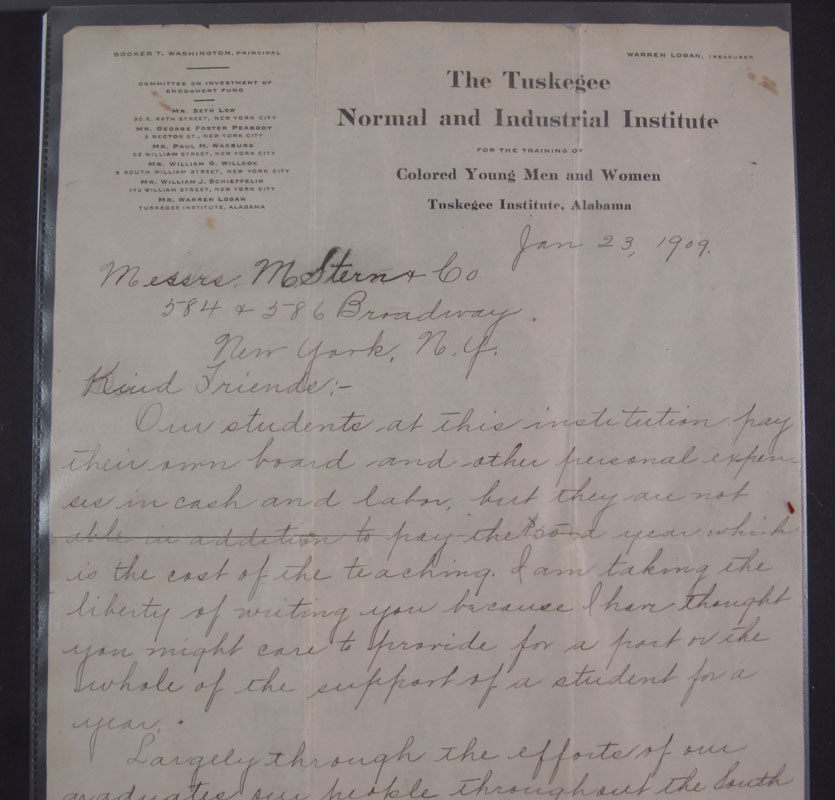 BOOKER T. WASHINGTON, PRINCIPAL
WARREN LOGAN, TREASURER
COMMITTEE ON INVESTMENT OF
ENDOWMENT FUND
MR. SETH LOW
30 E. 64TH STREET, NEW YORK CITY
MR. GEORGE FOSTER PEABODY
2 RECTOR ST., NEW YORK CITY
MR. PAUL M. WARBURG
52 WILLIAM STREET, NEW YORK CITY
MR. WILLIAM G. WILLCOX
3 SOUTH WILLIAM STREET, NEW YORK CITY
MR. WILLIAM J. SCHIEFFELIN
170 WILLIAM STREET, NEW YORK CITY
MR. WARREN LOGAN
TUSKEGEE INSTITUTE, ALABAMA
The Tuskegee
Normal and Industrial Institute
FOR THE TRAINING OF
Colored Young Men and Women
Tuskegee Institute, Alabama
Jan 23, 1909.
Messrs. M Stern & Co
584 & 586 Broadway.
New York, N.Y.
Kind Friends:-
Our students at this institution pay
their own board and other personal expen-
ses in cash and labor, but they are not
able in addition to pay the $50 a year which
is the cost of the teaching. I am taking the
liberty of writing you because I have thought
you might care to provide for a part or the
whole of the support of a student for a
year.
Largely through the efforts of our
graduates our people throughout the South